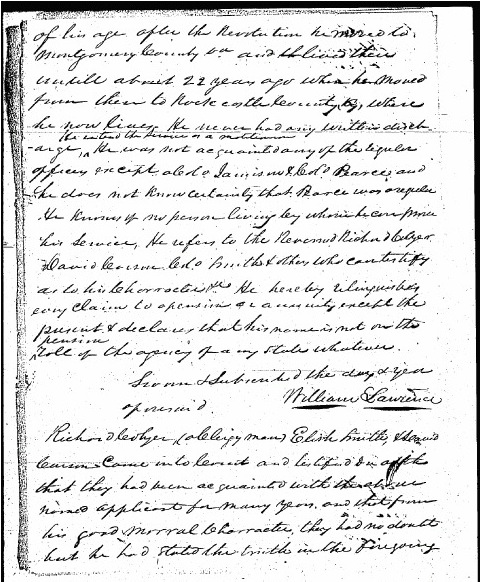 of his age after the Revolution he moved to
Montgomery County Va and lived their
untill about 22 years ago when he moved
from them to Rock castle County Ky, where
he now lives. He never had any written disch
the served as a
arge, He was not acquainted any of the regular
officers except Colo Jamison & Colo and
he does not know certainly that was a regular
He knows of no person living by whom he can prove
his service, He refers to the Reverend Richard
David Colo Smith & others who can testify
as to his Charracter &c He hereby relinquishes
every Claim to a pension or annuity except the
present & declares that his name is not on the
pension
Roll of the agency of any State whatever.
Sworn & Subscribed the day & year
aforesaid. William Lawrence
Richard (a Clergyman) Smith, & David
Came into Court and testified on oath
that they had been acquainted with the above
named applicant for many years, and that from
his good morral Character, they had no doubt
but he had stated the truth in the foregoing